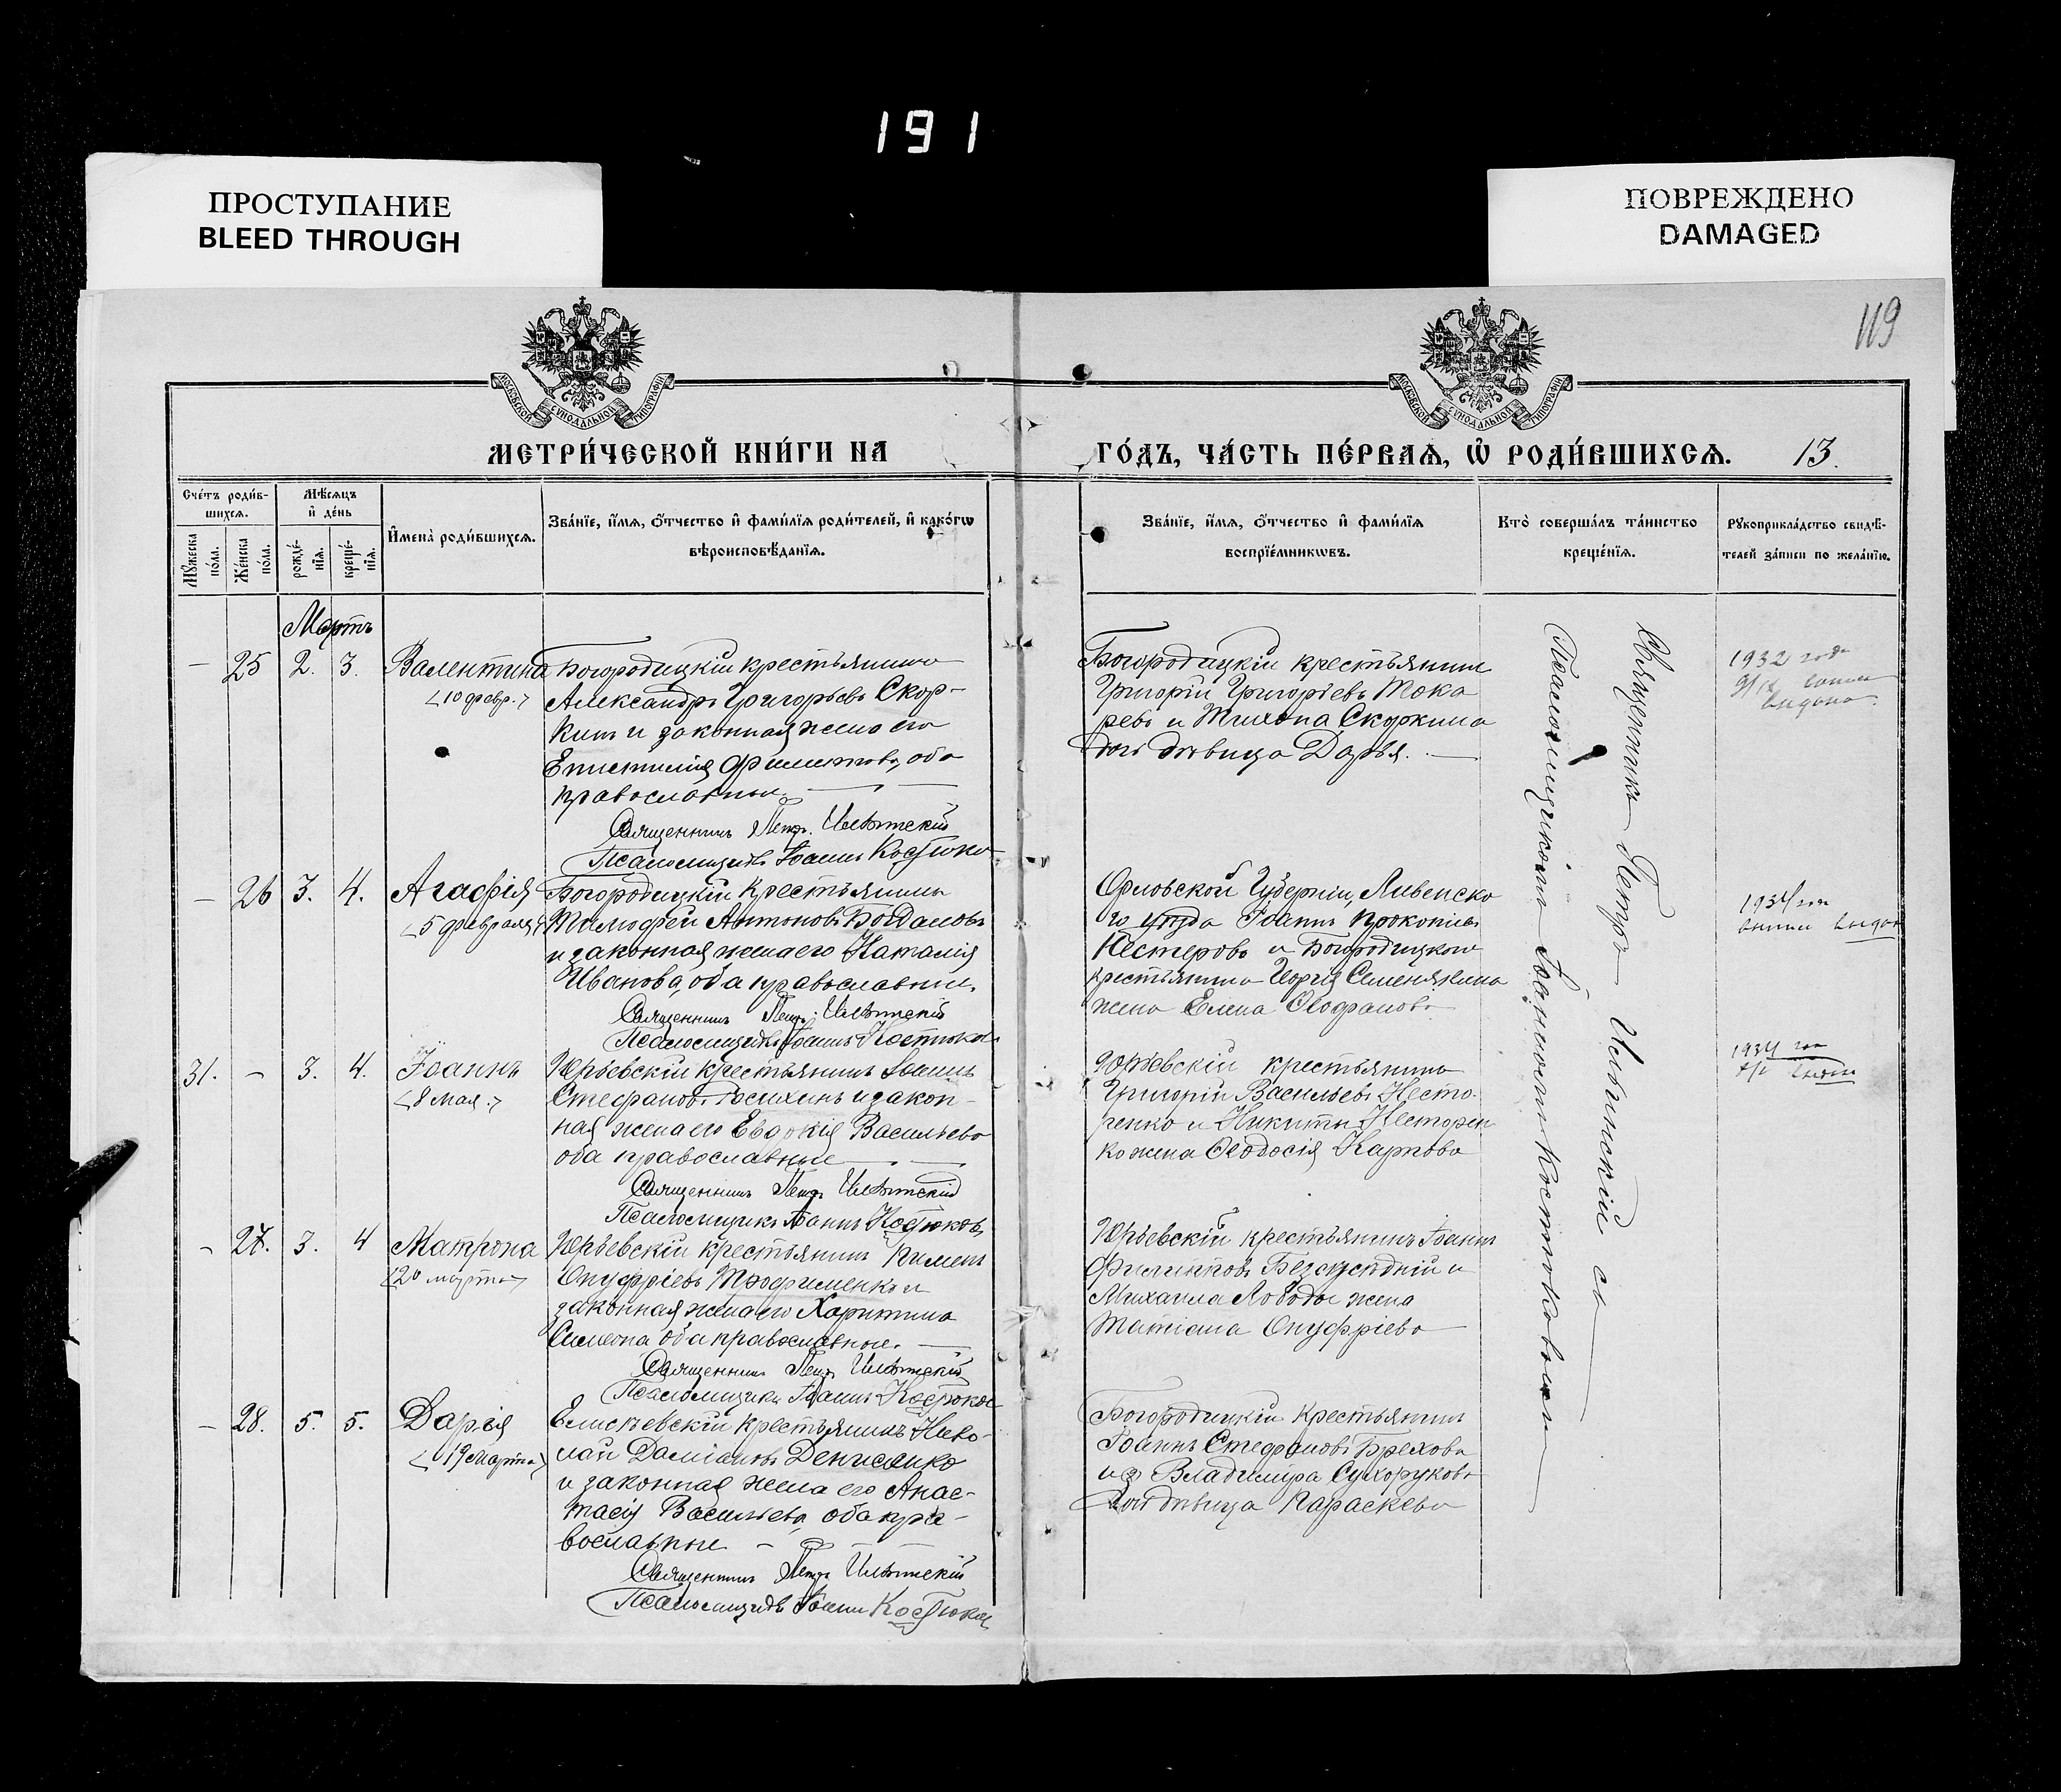 191
ПРОСТУПАНИЕ
BLEED THROUGH
ПОВРЕЖДЕНО
DAMAGED
119
МОСКОВСКОЙ СУНОДАЛЬНОЙ ТИПОГРАФІИ
МОСКОВСКОЙ СУНОДАЛЬНОЙ ТИПОГРАФІИ
МЕТРИ́ЧЕСКОЙ КНИ́ГИ НА
ГО́ДЪ, ЧА́СТЬ ПЕ́РВАѦ, Ѡ҆ РОДИ́ВШИХСѦ. 13.
Сче́тъ роди́в-
шихсѧ.
Мѣ́сѧцъ
и҆ де́нь
Мꙋ́жеска по́ла.
Же́нска по́ла.
рожде́-нїѧ.
креще́-нїѧ.
И҆мена̀ роди́вшихсѧ.
Зва́нїе, и҆́мѧ, ѻ҆́тчество и҆ фами́лїѧ роди́телей, и҆ како́гѡ
вѣроисповѣ́данїѧ.
Зва́нїе, и҆́мѧ, ѻ҆́тчество и҆ фами́лїѧ
воспрїе́мникѡвъ.
Кто̀ соверша́лъ та́инство
креще́нїѧ.
Рꙋкоприкла́дство свидѣ́-
телей за́писи по жела́нїю.
Мартъ
— 25 2. 3. Валентина
10 февр.
Богородицкій крестьянинъ
Александръ Григорьевъ Скор-
кинъ и законная жена его
оба
православные.
Священникъ Петръ Ильинскій
Псаломщикъ Іоаннъ Костюковъ
Богородицкій крестьянинъ
Григорій Григорьевъ Тока
ревъ и Тихона Скоркина
дочь дѣвица Дарья. —
1932 года
9/IX
выдана.
— 26 3. 4. Агафія
5 февраля
Богородицкій крестьянинъ
Тимофей Антоновъ Богдановъ
и законная жена его Наталія
Иванова, оба православные.
Священникъ Петръ Ильинскій
Псаломщикъ Іоаннъ Костюковъ
Орловской Губерніи, Ливенска
го уѣзда Іоаннъ Прокопіевъ
Нестеровъ и Богородицкого
крестьянина Георгія Семенякина
жена Елена
1934 год
31. — 3. 4. Іоаннъ
8 мая
Юрьевскій крестьянинъ Іоаннъ
Стефановъ и закон-
ная жена его Евдокія Васильева
оба православные —
Священникъ Петръ Ильинскій
Псаломщикъ Іоаннъ Костюковъ
Юрьевскій крестьянинъ
Григорій Васильевъ Несто-
ренко и Никиты Несторен
ко жена Ѳеодосія Карпова
1934
— 27. 3. 4 Матрона
20 марта
Юрьевскій крестьянинъ Пименъ
Онуфріевъ Трофименко и
законная жена его Харитина
оба православные. —
Священникъ Петръ Ильинскій
Псаломщикъ Іоаннъ Костюковъ
Юрьевскій крестьянинъ Іоаннъ
Филипповъ и
Михаила Лободы жена
Татіана Онуфріева —
— 28. 5. 5. Дарья
19 марта
Елисѣевскій крестьянинъ Нико-
лай Даміановъ Денисенко
и законная жена его Анас-
тасія Васильева, оба пра-
вославные —
Священникъ Петръ Ильинскій
Псаломщикъ Іоаннъ Костюковъ
Богородицкій крестьянинъ
Іоаннъ Стефановъ Брехова
и Владиміра Сухорукова
дочь дѣвица Параскева
Священникъ Петръ Ильинскій съ
Псаломщикомъ Іоанномъ Костюковымъ